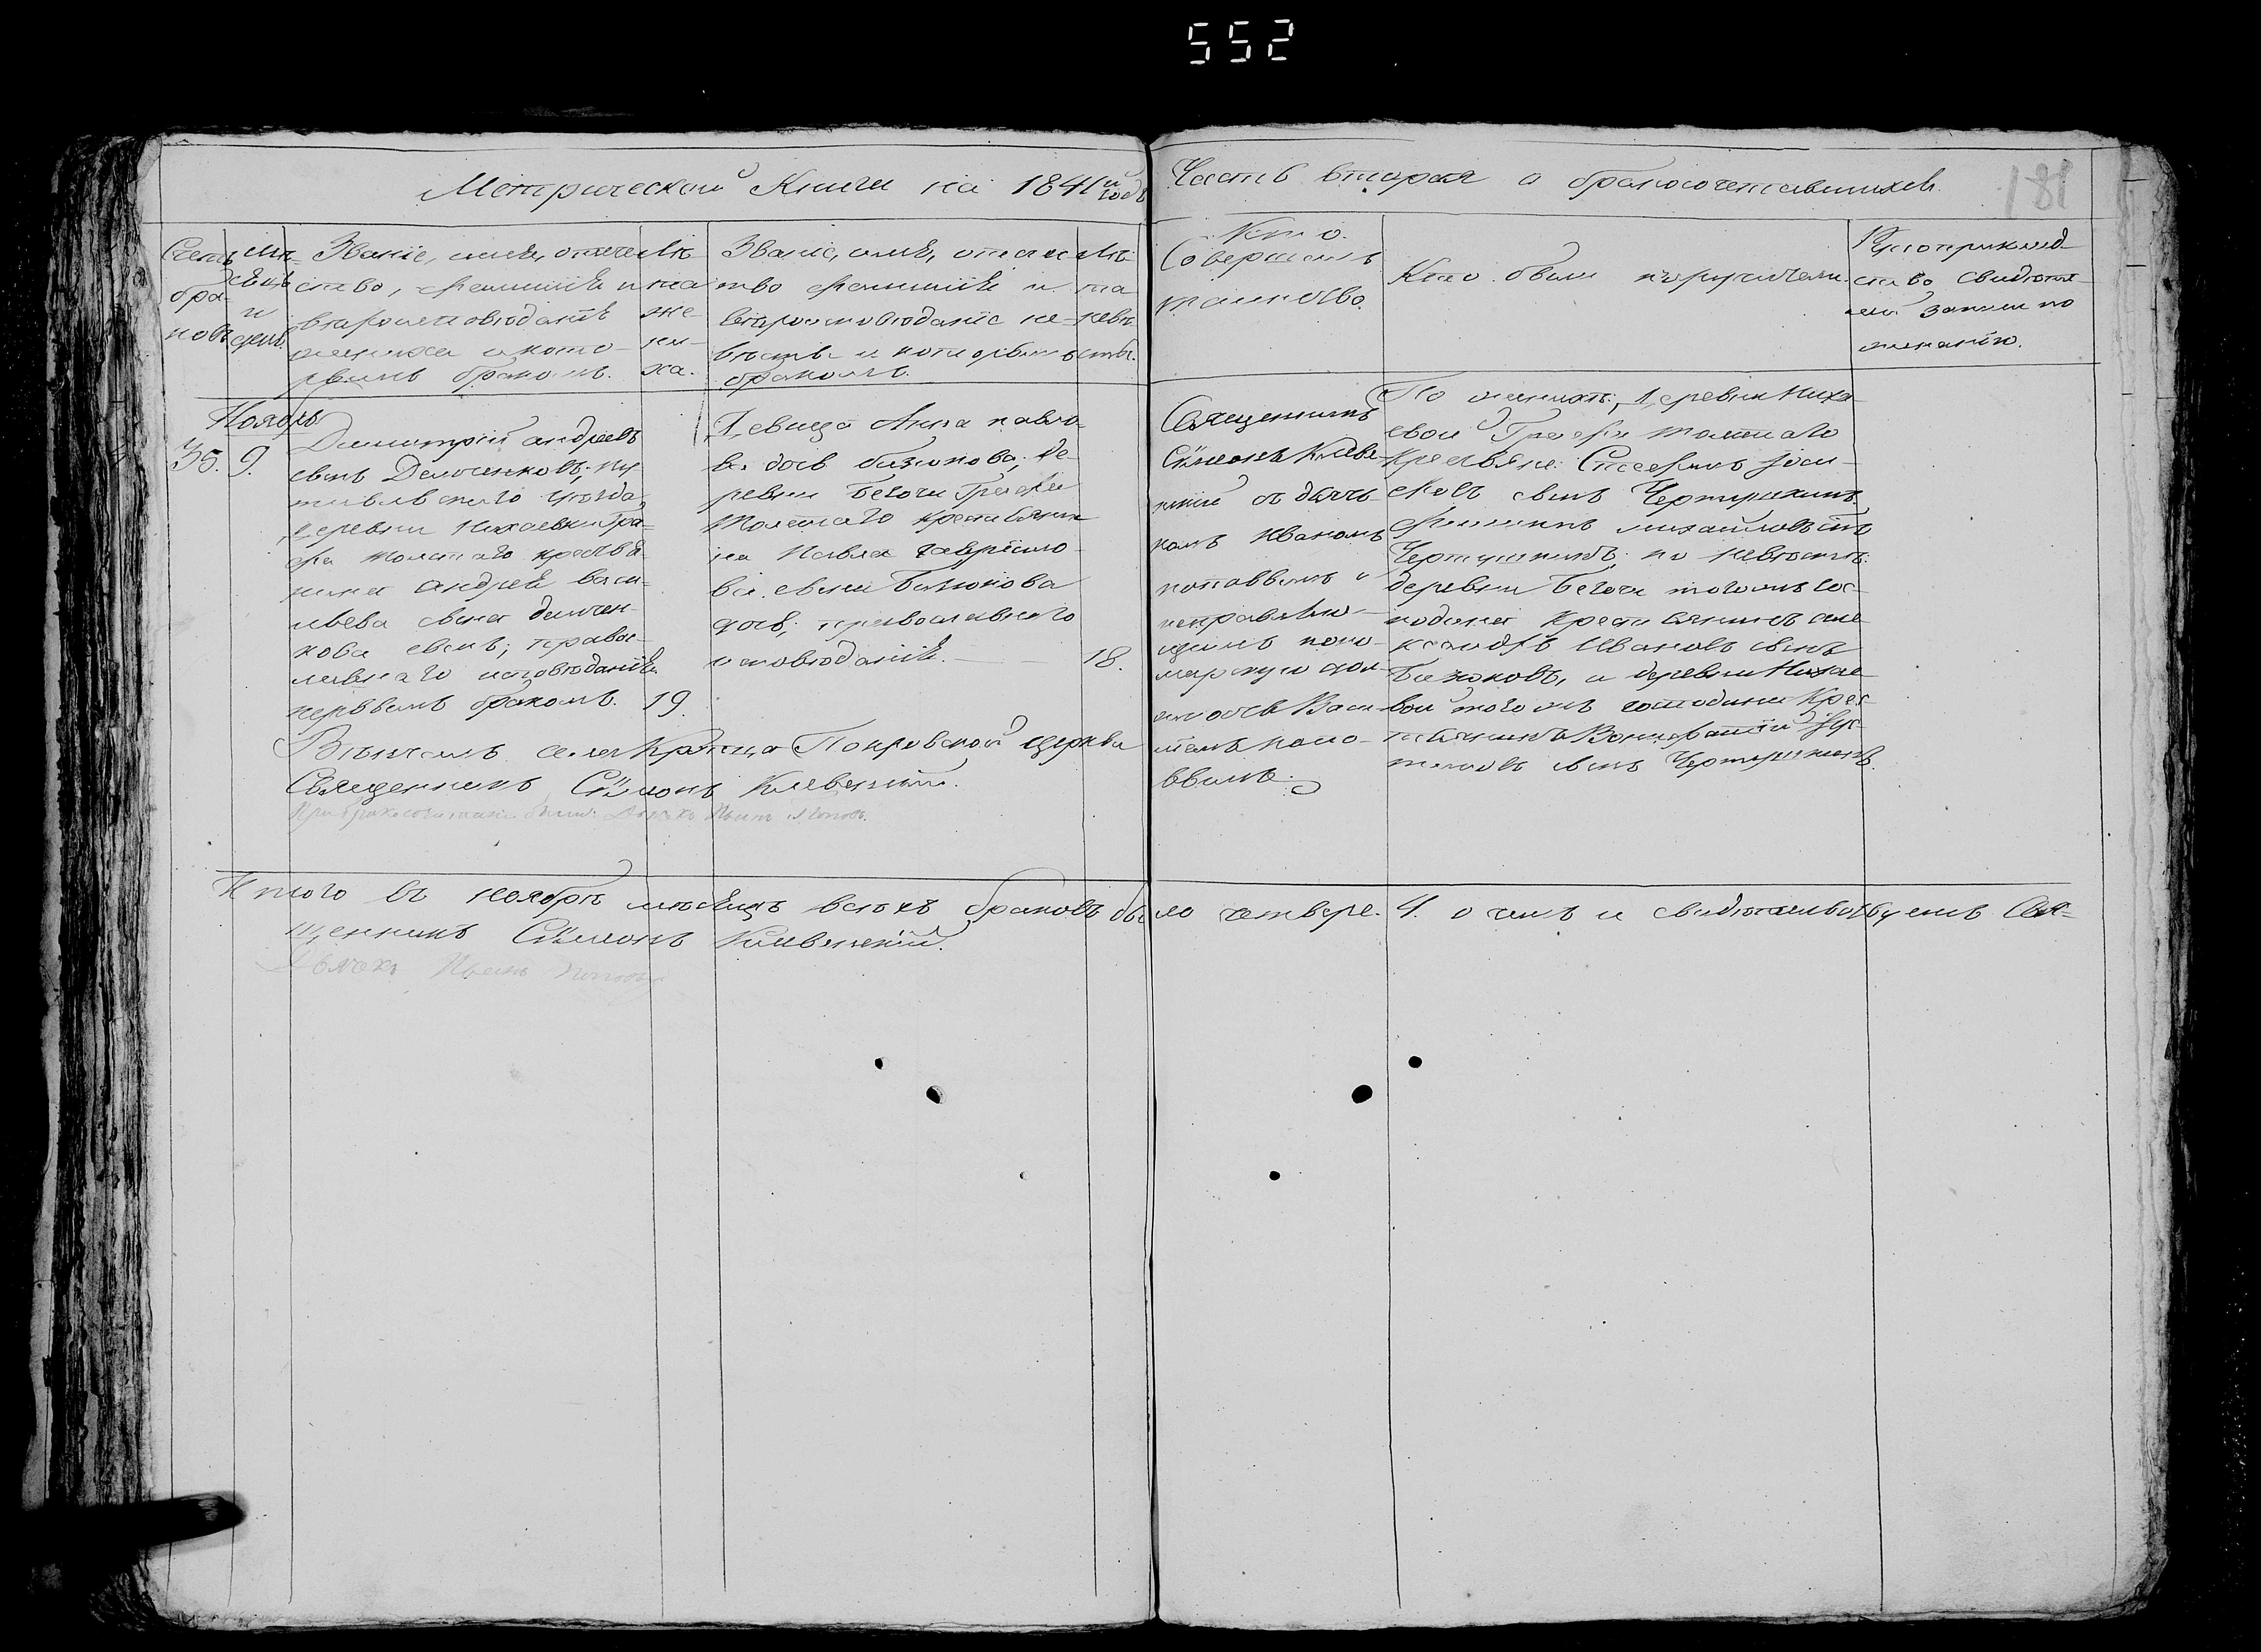 552
Метрической Книги на 1841й годъ
Часть вторая о бракосочетавшихся.
181
Счетъ браковъ
Мѣсяцъ и день.
Званіе, имя, отече-
ство, фамилія и
вѣроисповѣданіе
жениха и кото-
рымъ бракомъ.
Лѣта жениха.
Званіе, имя, отчес
тво фамилія и
вѣроисповѣданіе не-
вѣсты и которымъ
бракомъ.
Лѣта невѣсты.
Кто
Совершалъ
таинство.
Кто были поручители.
Рукоприклад-
ство свидѣте-
лей записи по
желанію.
Ноябрь
35. 9.
Димитрій андреевъ
сынъ Демченковъ, пу-
тивльскаго уѣзда,
деревни Нихаевки Гра-
фа Толстаго крестья-
нина андрея васи-
льева сына демчен-
кова сынъ; правос-
лавнаго исповѣданія
первымъ бракомъ. 19.
Дѣвица Анна павло-
ва дочь базюкова; де-
ревни Бегочи Графа
Толстаго крестьянина
на Павла гаврило-
ва сына Базюкова
дочь; православнаго
исповѣданія. 18.
Священникъ
Сѵмеонъ Клеве-
нскій съ дьяч-
комъ Иваномъ
поповымъ и
исправляю-
щимъ поно-
марскую дол-
жность Васи-
льемъ попо-
вымъ.
По женихѣ; Деревни Ниха
евки Графа Толстаго
Крестьяне
сынъ
михайловъ сынъ
по невѣстѣ
деревни Бегочи тогожъ гос-
подина Крестьянинъ але
ксандръ Ивановъ сынъ
Базюковъ, и деревни Нихае
вки тогожъ господина Крес
тьянинъ
сынъ
Вѣнчалъ села Покровской церкви
Священникъ Сѵмеонъ Клевенскій.
При бракосочетаніи были: Дьячекъ Иванъ Поповъ.
Итого въ ноябрѣ мѣсяцѣ всѣхъ браковъ было четыре. 4. о чемъ и свидѣтельствуемъ Свя-
щенникъ Сѵмеонъ Клевенскій.
Дьячекъ Иванъ Поповъ